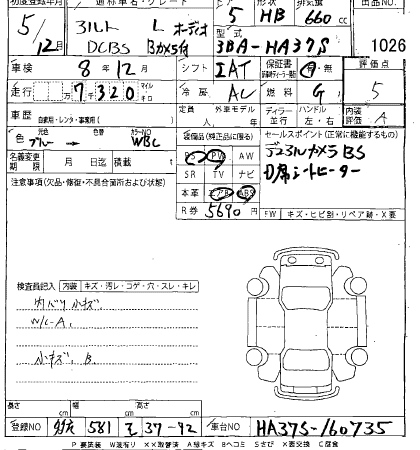 初度登録年月 通称車名・グレード ドア 形状 排気量 出品NO
5 HB 660 cc
5/12月 アルト L オーディオ
DCBS Bカメラ付 型式 3BA-HA37S 1026
車検 8年12月 シフト IAT 保証書 有・無 評価点
走行 7万7320 マイル キロ 冷房 AC 燃料 G 5
車歴 自家用・レンタ・事業用 定員 人 外車モデル 年 ディーラー 並行 ハンドル 左・右 内装 A
色 元色 ブルー 色替 カラーNO WBC 装備品(純正品に限る) セールスポイント(正常に機能するもの)
名義変更期限 月 日迄 積載 t PS PW AW デュアルカメラBS
SR TV ナビ D席シートヒーター
注意事項(欠品・修復・不具合箇所及び状態) 本革 エアB ABS
R券 5690 FW キズ・ヒビ割・リペア跡・X
検査員記入 内装 キズ・汚レ・コゲ・穴・スレ・キレ
内バリ小キズ
W/C-A,
小キズ, B
長さ cm 幅 cm 高さ cm
登録NO 581 37-92 車台NO HA37S-160735
P 要塗装 W波有り XX取替済 A線キズ Bヘコミ Sさび X要交換 C腐食